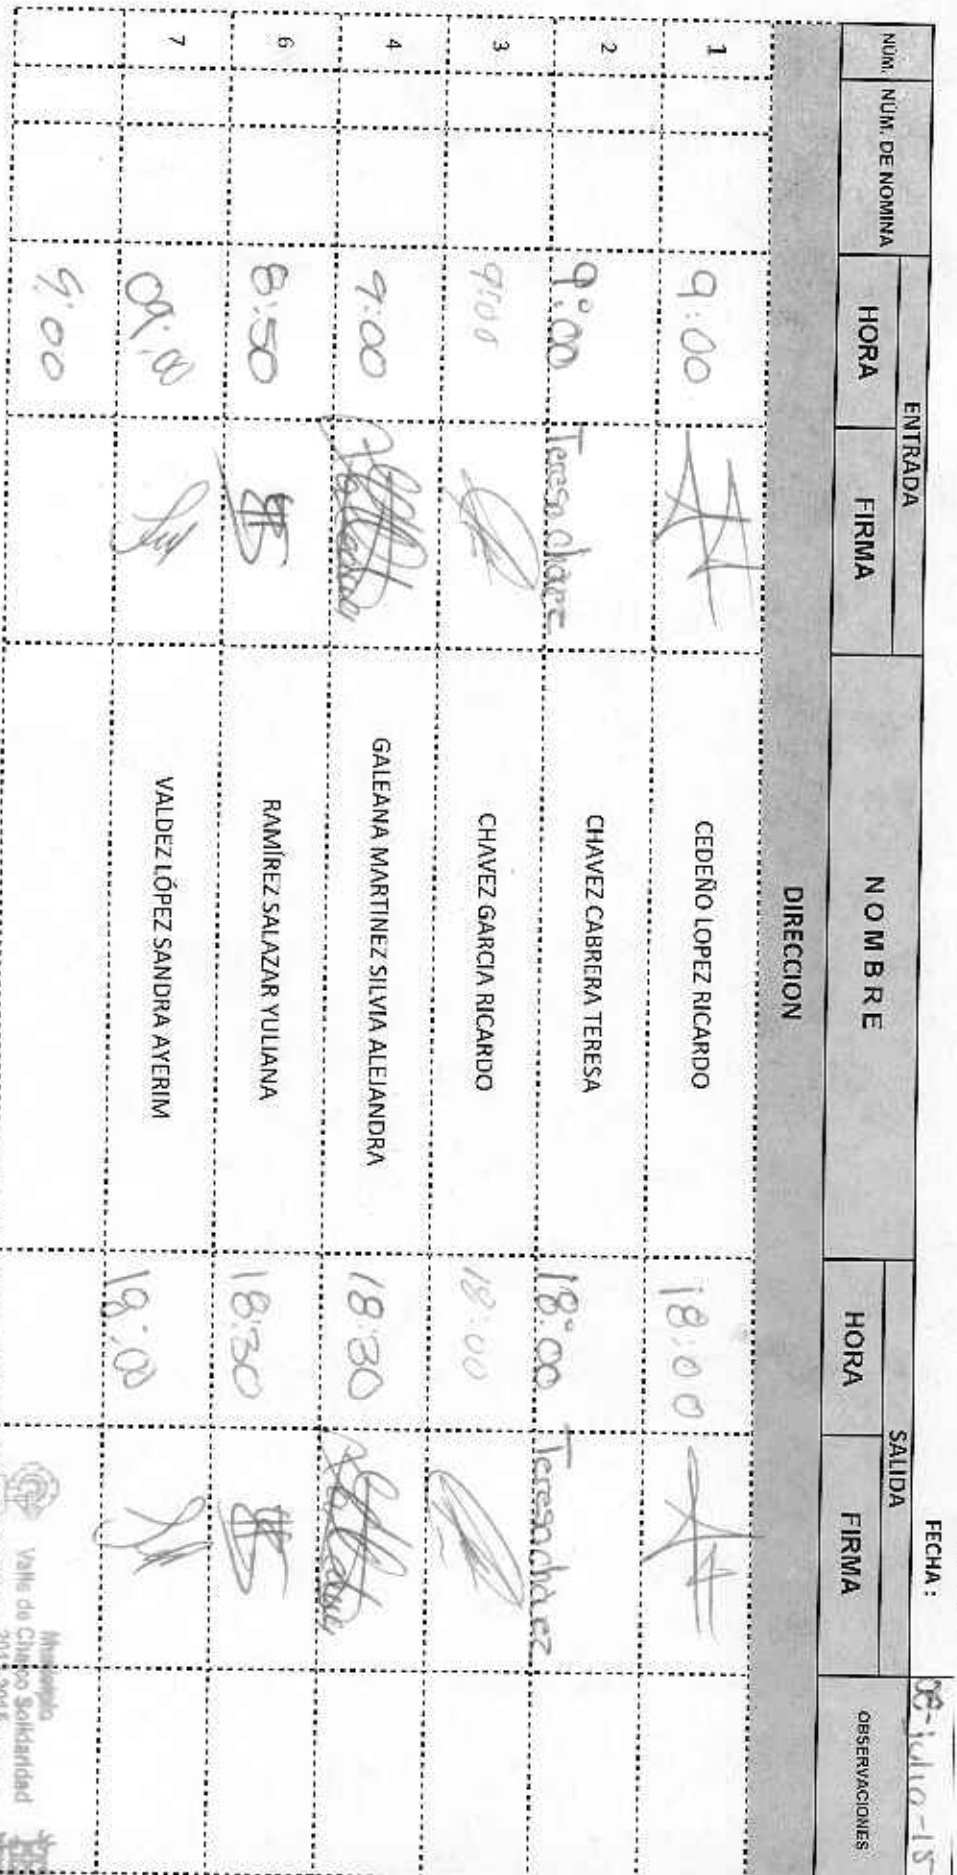 FECHA: 08-julio-15
NÚM. NÚM. DE NOMINA ENTRADA NOMBRE SALIDA OBSERVACIONES
HORA FIRMA HORA FIRMA
DIRECCION
1 9:00 CEDEÑO LOPEZ RICARDO 18:00
2 9:00 Teresa chavez CHAVEZ CABRERA TERESA 18:00 Teresa chavez
3 9:00 CHAVEZ GARCIA RICARDO 18:00
4 9:00 GALEANA MARTINEZ SILVIA ALEJANDRA 18:30
6 8:50 RAMÍREZ SALAZAR YULIANA 18:30
7 09:00 VALDEZ LÓPEZ SANDRA AYERIM 18:00
9:00
Municipio
Valle de Chalco Solidaridad